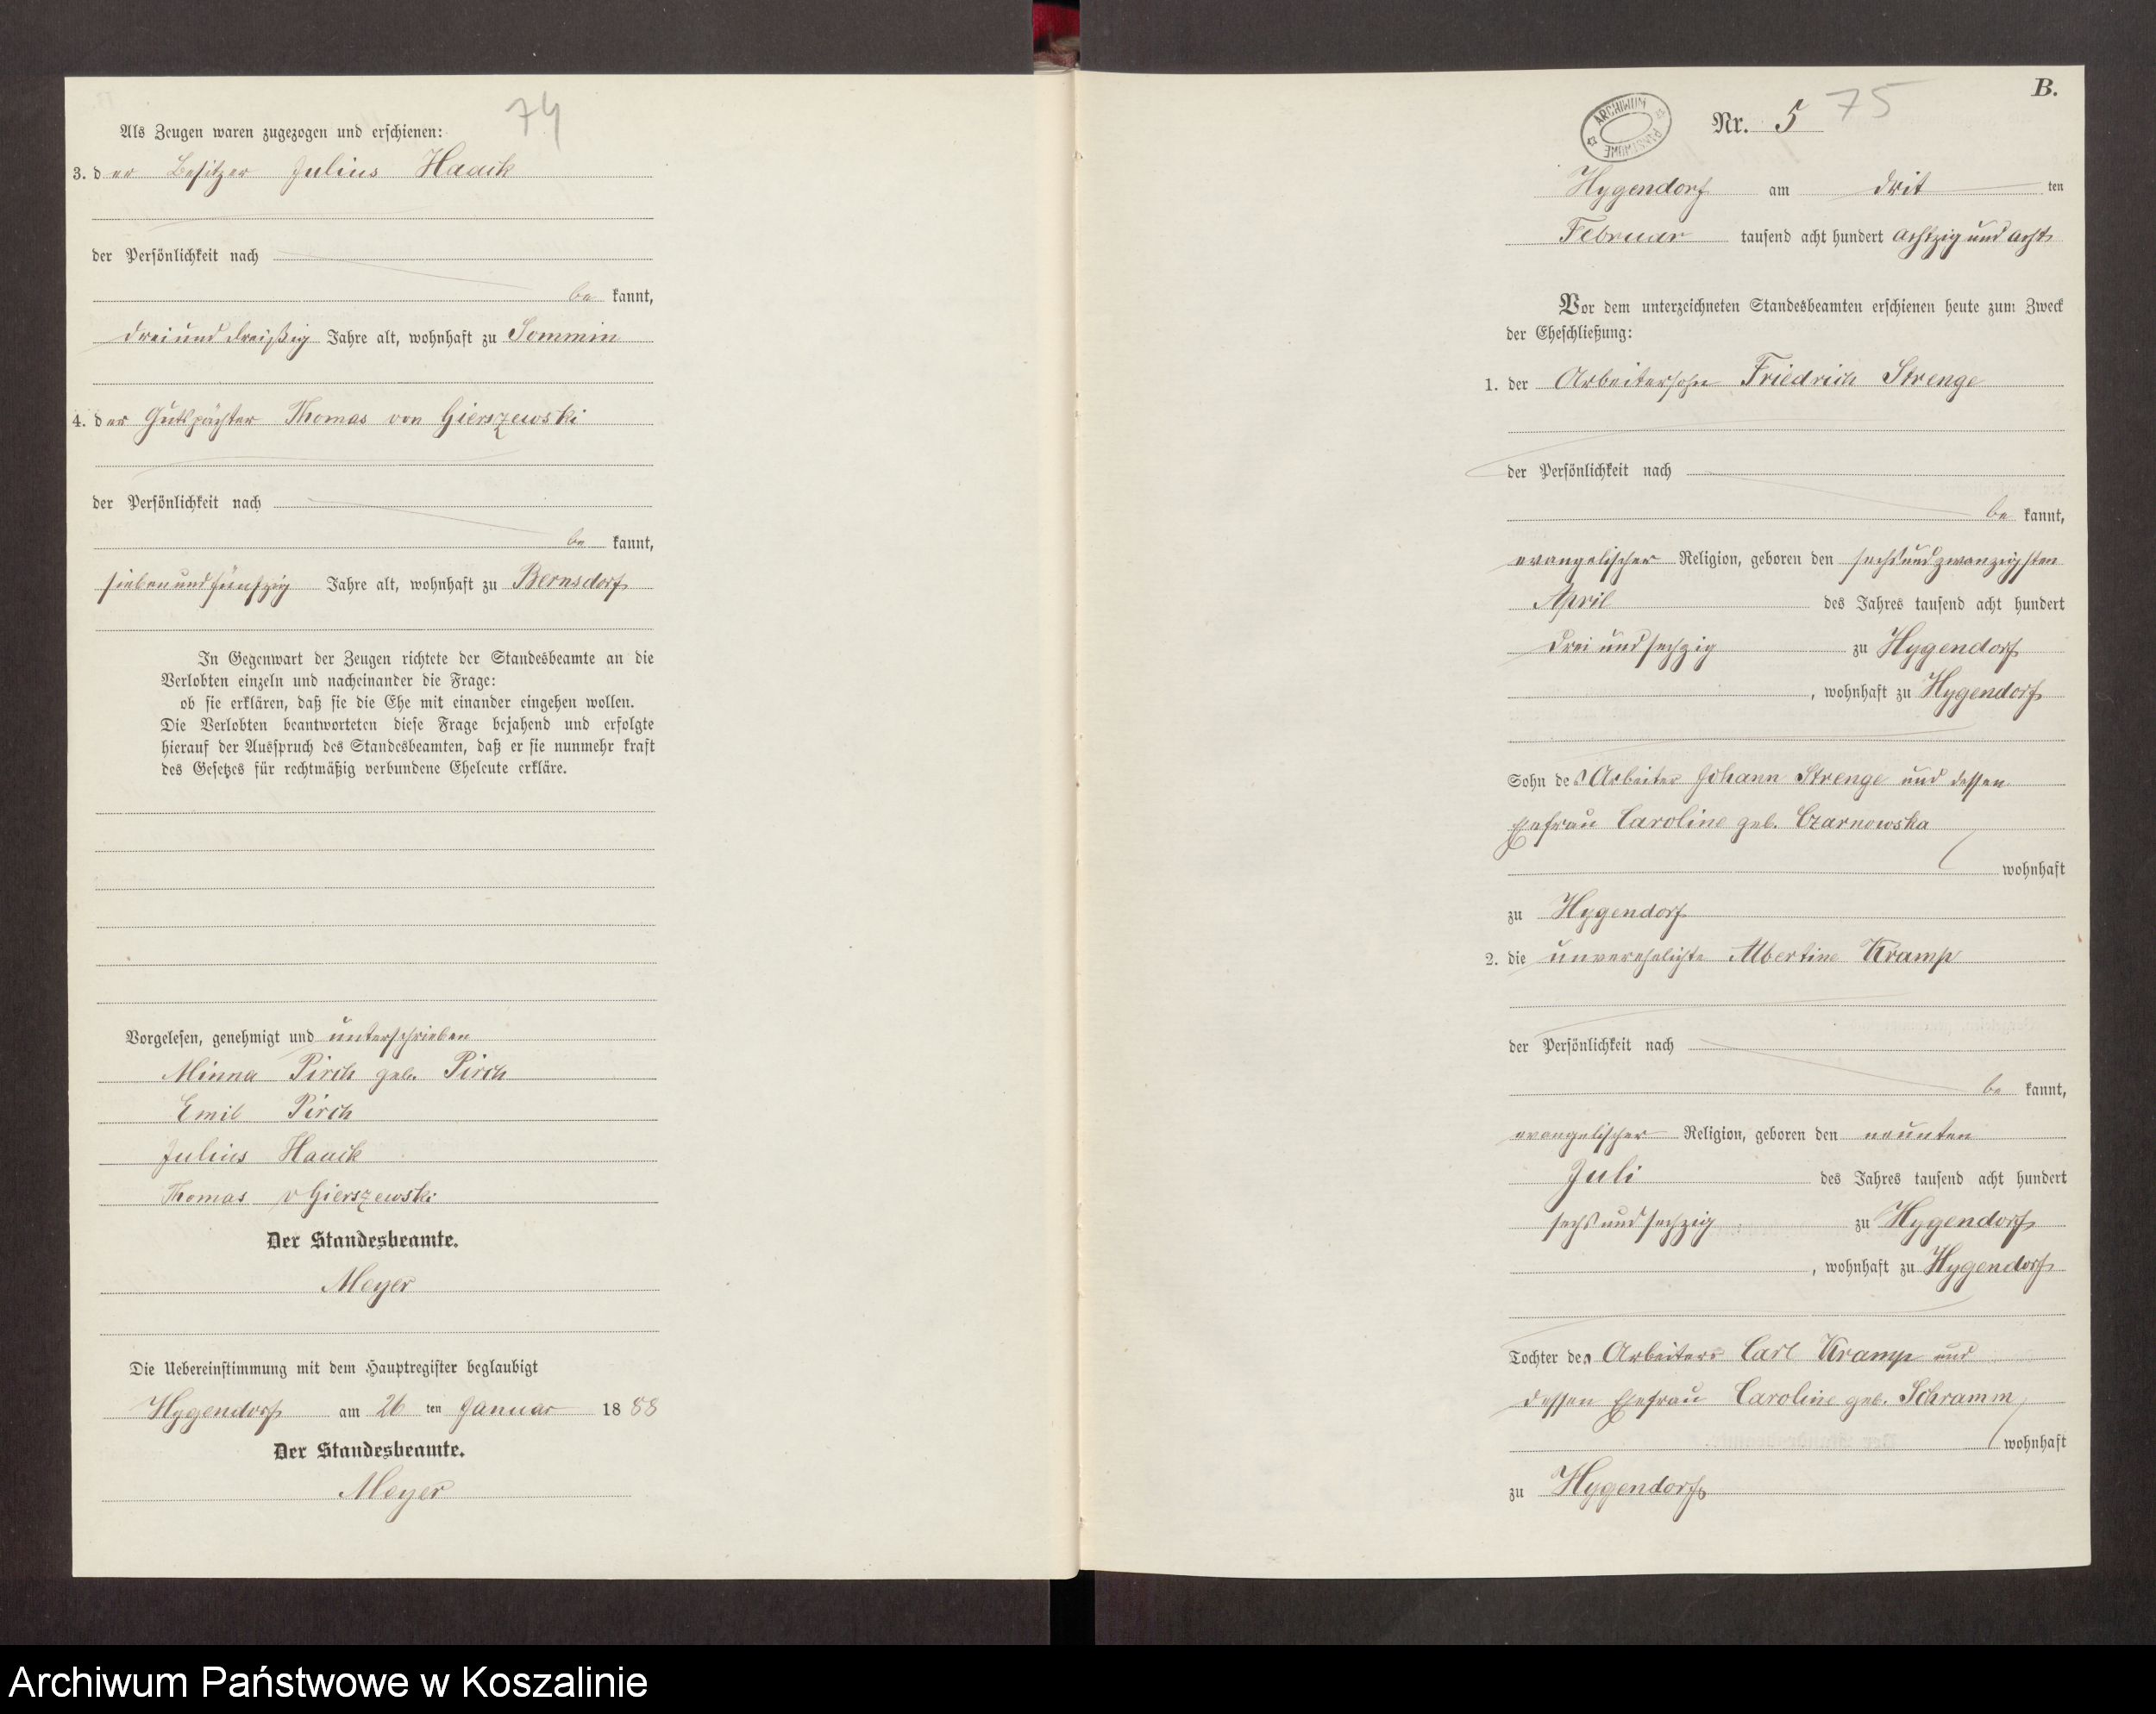 74
Als Zeugen waren zugezogen und erschienen:
3. der Besitzer Julius Haack
der Persönlichkeit nach
bekannt,
dreiunddreißig Jahre alt, wohnhaft zu Sommin
4. der Gutspächter Thomas von Gierszewski
der Persönlichkeit nach
bekannt,
siebenundfünfzig Jahre alt, wohnhaft zu Bernsdorf
In Gegenwart der Zeugen richtete der Standesbeamte an die
Verlobten einzeln und nacheinander die Frage:
ob sie erklären, daß sie die Ehe mit einander eingehen wollen.
Die Verlobten beantworteten diese Frage bejahend und erfolgte
hierauf der Ausspruch des Standesbeamten, daß er sie nunmehr kraft
des Gesetzes für rechtmäßig verbundene Eheleute erkläre.
Vorgelesen, genehmigt und unterschrieben
Minna Pirch geb. Pirch
Emil Pirch
Julius Haack
Thomas v Gierszewski
Der Standesbeamte.
Meyer
Die Uebereinstimmung mit dem Hauptregister beglaubigt
Hygendorf am 26 ten Januar 1888
Der Standesbeamte.
Meyer
B.
ARCHIWUM PAŃSTWOWE
Nr. 5 75
Hygendorf am dritten
Februar tausend acht hundert achtzig und acht
Vor dem unterzeichneten Standesbeamten erschienen heute zum Zweck
der Eheschließung:
1. der Arbeitersohn Friedrich Strenge
der Persönlichkeit nach
bekannt,
evangelischer Religion, geboren den sechsundzwanzigsten
April des Jahres tausend acht hundert
drei und sechzig zu Hygendorf
, wohnhaft zu Hygendorf
Sohn des Arbeiter Johann Strenge und dessen
Ehefrau Caroline geb. Czarnowska
wohnhaft
zu Hygendorf
2. die unverehelichte Albertine Kramp
der Persönlichkeit nach
bekannt,
evangelischer Religion, geboren den neunten
Juli des Jahres tausend acht hundert
sechs und sechzig zu Hygendorf
, wohnhaft zu Hygendorf
Tochter des Arbeiters Carl Kramp und
dessen Ehefrau Caroline geb. Schramm
wohnhaft
zu Hygendorf
Archiwum Państwowe w Koszalinie